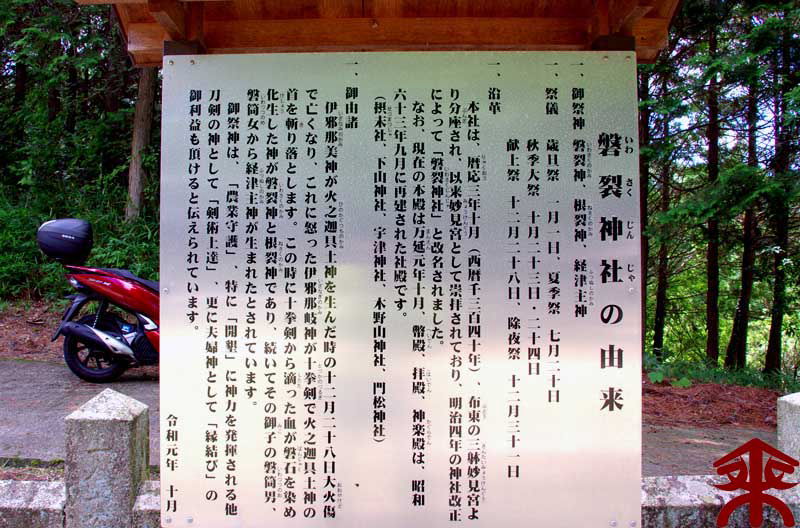 磐裂神社の由来
一、御祭神 磐裂神、根裂神、経津主神
一、祭儀 歳旦祭 一月一日、夏季祭 七月二十日
秋季大祭 十月二十三日・二十四日
献上祭 十二月二十八日、除夜祭 十二月三十一日
一、沿革
本社は、暦応三年十月（西暦千三百四十年）、布東の三躰妙見宮よ
り分座され、以来妙見宮として崇拝されており、明治四年の神社改正
によって「磐裂神社」と改名されました。
なお、現在の本殿は万延元年十月、幣殿、拝殿、神楽殿は、昭和
六十三年九月に再建された社殿です。
（摂末社、下山神社、宇津神社、木野山神社、門松神社）
一、御由諸
伊邪那美神が火之迦具土神を生んだ時の十二月二十八日大火傷
で亡くなり、これに怒った伊邪那岐神が十拳剣で火之迦具土神の
首を斬り落とします。この時に十拳剣から滴った血が磐石を染め
化生した神が磐裂神と根裂神であり、続いてその御子の磐筒男、
磐筒女から経津主神が生まれたとされています。
御祭神は、「農業守護」、特に「開墾」に神力を発揮される他
刀剣の神として「剣術上達」、更に夫婦神として「縁結び」の
御利益も頂けると伝えられています。
令和元年 十月